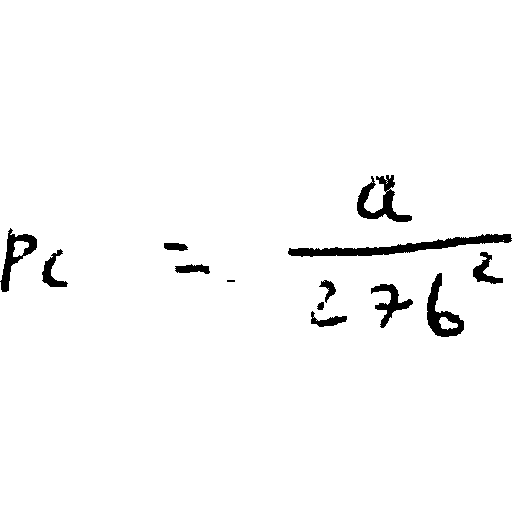 Pc = a / 27b²